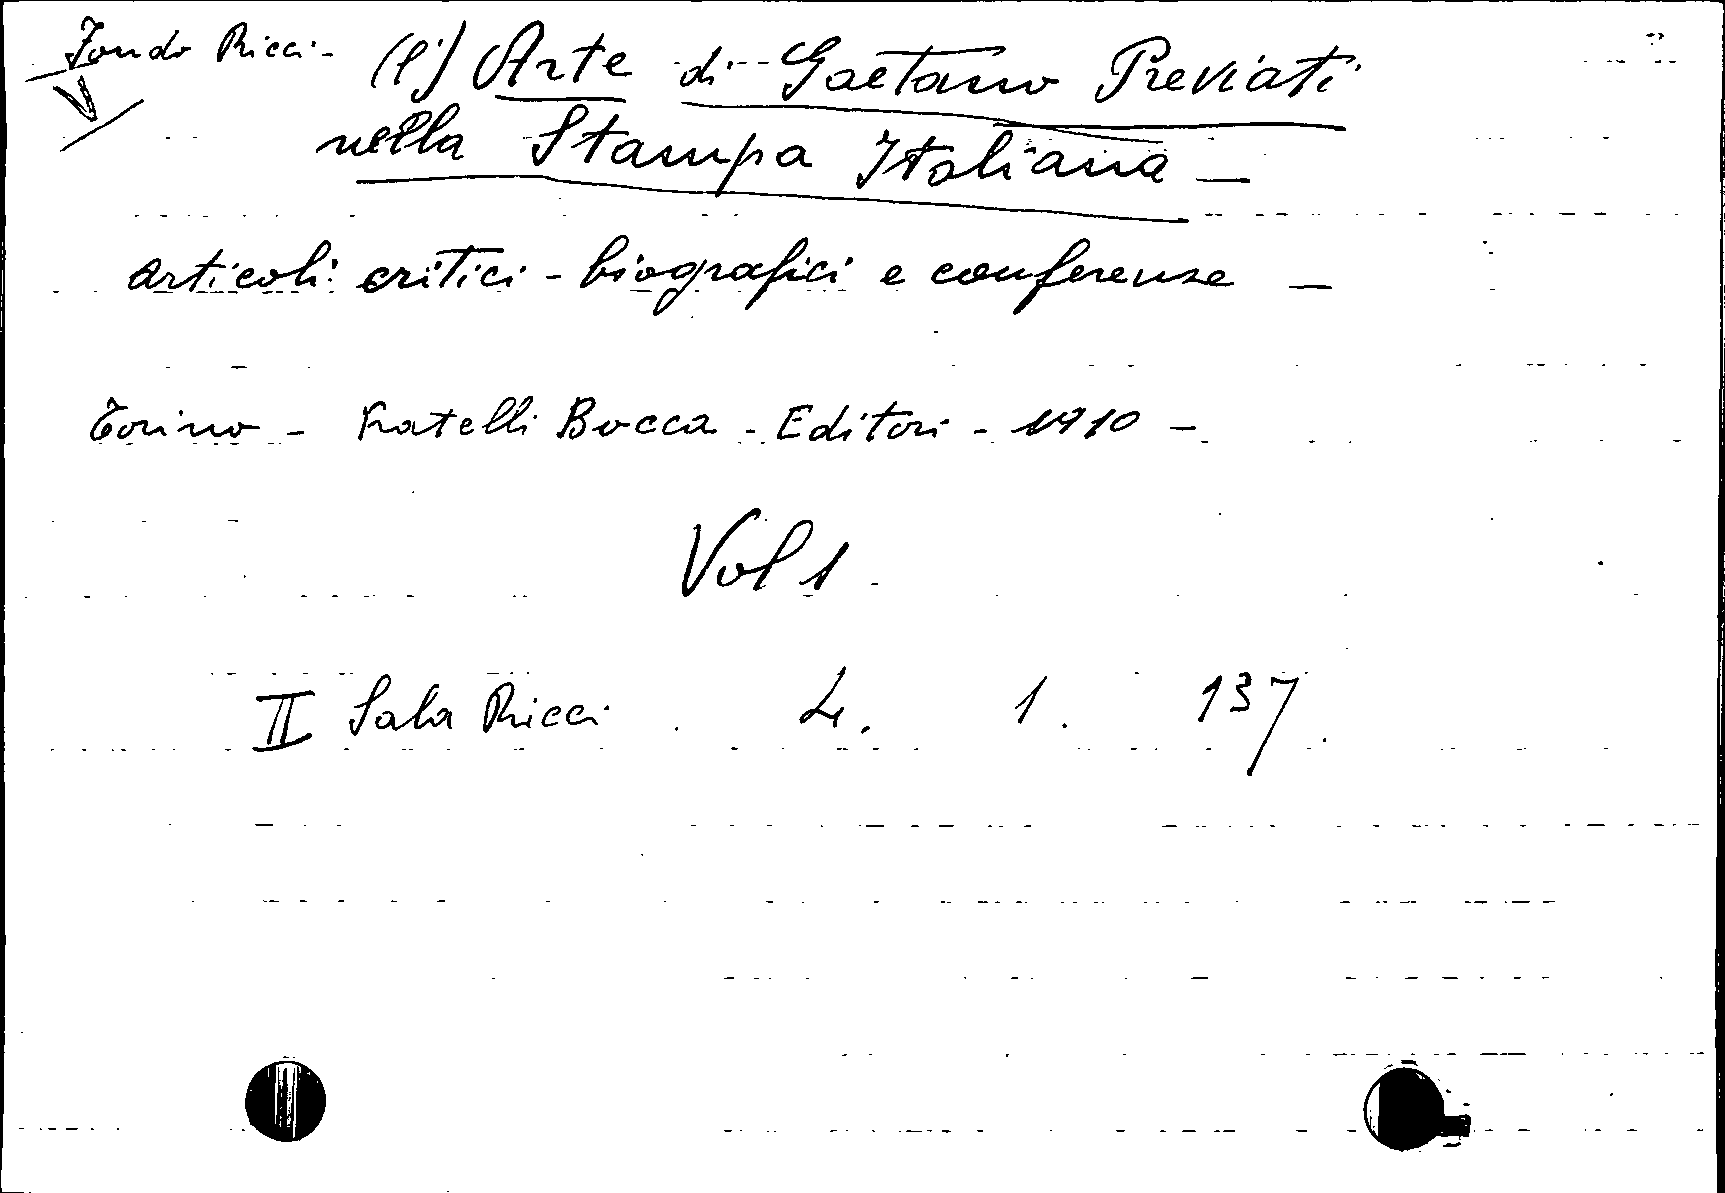 Fondo Ricci - (l') Arte di Gaetano Previati
V
nella Stampa Italiana -
articoli critici - biografici e conferenze -
Torino - Fratelli Bocca - Editori - 1910 -
Vol 1
II Sala Ricci . 4. 1. 137.